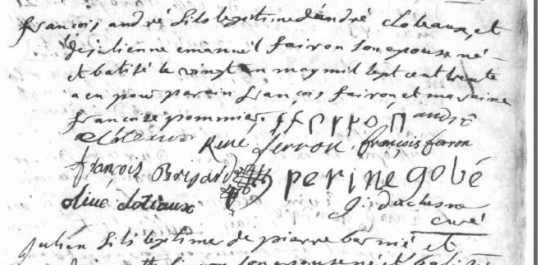 françois andré fils legitime d'andré cloteaux, et
de julienne emanuel fairon son epouse né
et batisé le vingt en may mil sept cent trente
a eu pour parein françois fairon et maraine
françoise pommier ffrron andré
cloteaux Rene ferron françois faron
françois Brisard perine gobé
olive clotiaux J: duchesne
curé
Julien fils legitime de pierre barmé et
son epouse né et batisé